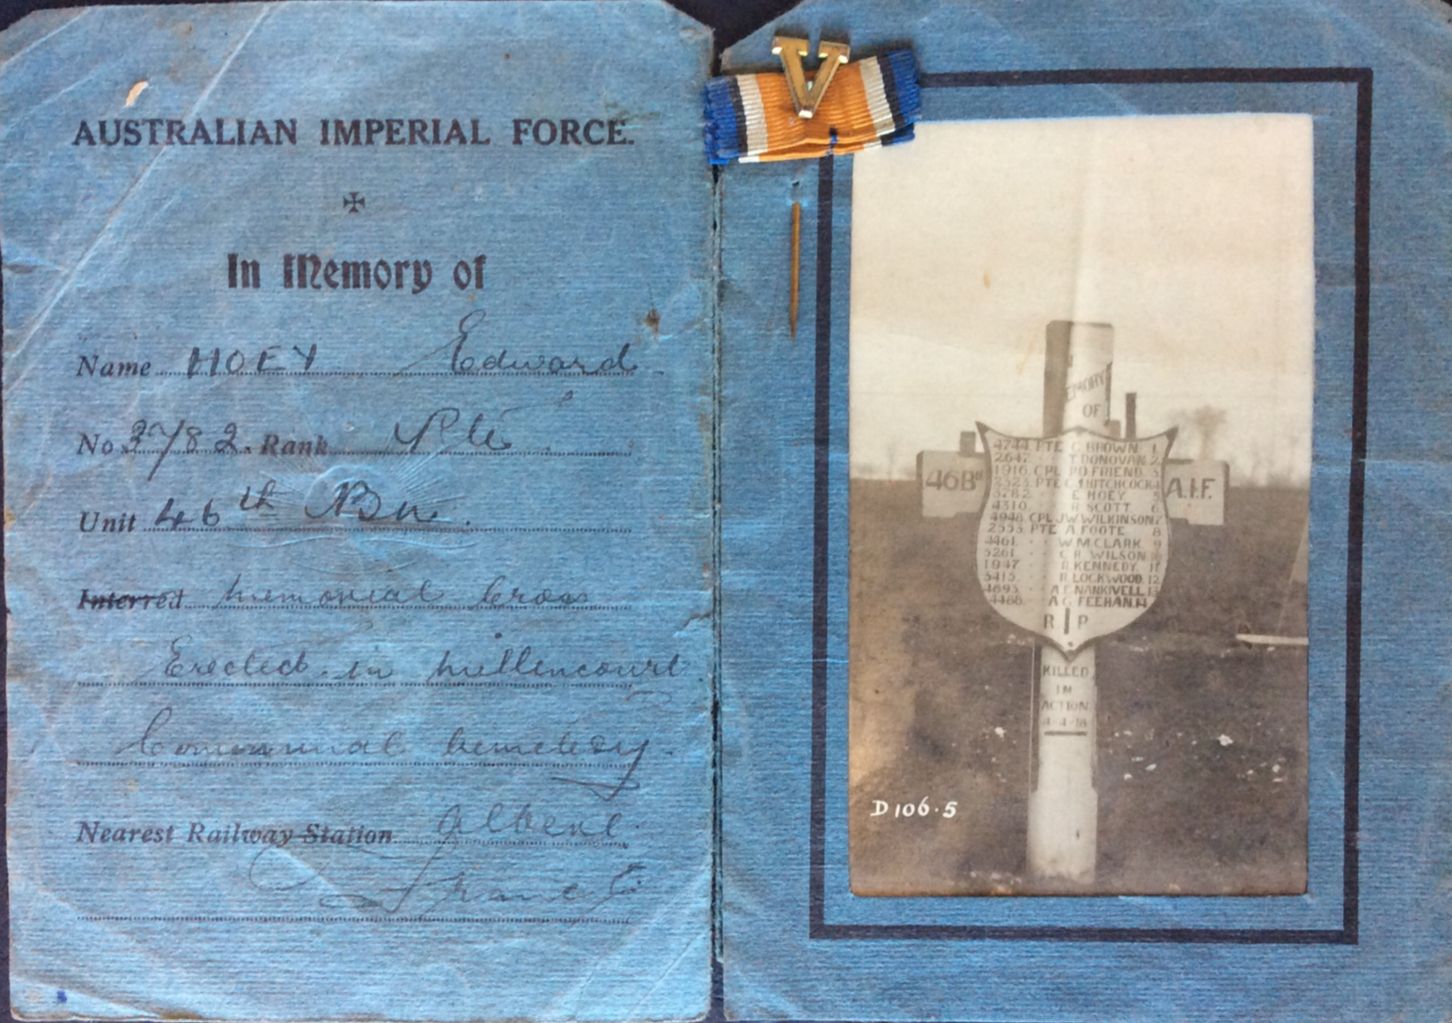 AUSTRALIAN IMPERIAL FORCE.
In Memory of
Name HOEY Edward
No 3782. Rank Pte
Unit 46th Bn.
Interred Memorial Cross
Erected in Millencourt
Communal Cemetery.
Nearest Railway Station Albert.
France
V
EMORY
OF
46Bn
A.I.F.
4744 PTE C BROWN 1
264. T DONOVAN 2
1916 CPL FRIEND 3
2323 PTE C HUTCHCOCK 4
3782 E HOEY 5
4310 R SCOTT 6
4948 CPL J.W. WILKINSON 7
2553 PTE A FOOTE 8
4461 W M CLARK 9
5261 C R WILSON 10
1947 R KENNEDY 11
5415 R LOCKWOOD 12
4893 A E NANKIVELL 13
4488 A G FEEHAN 14
R I P
KILLED
IN
ACTION
4-4-18
D106.5